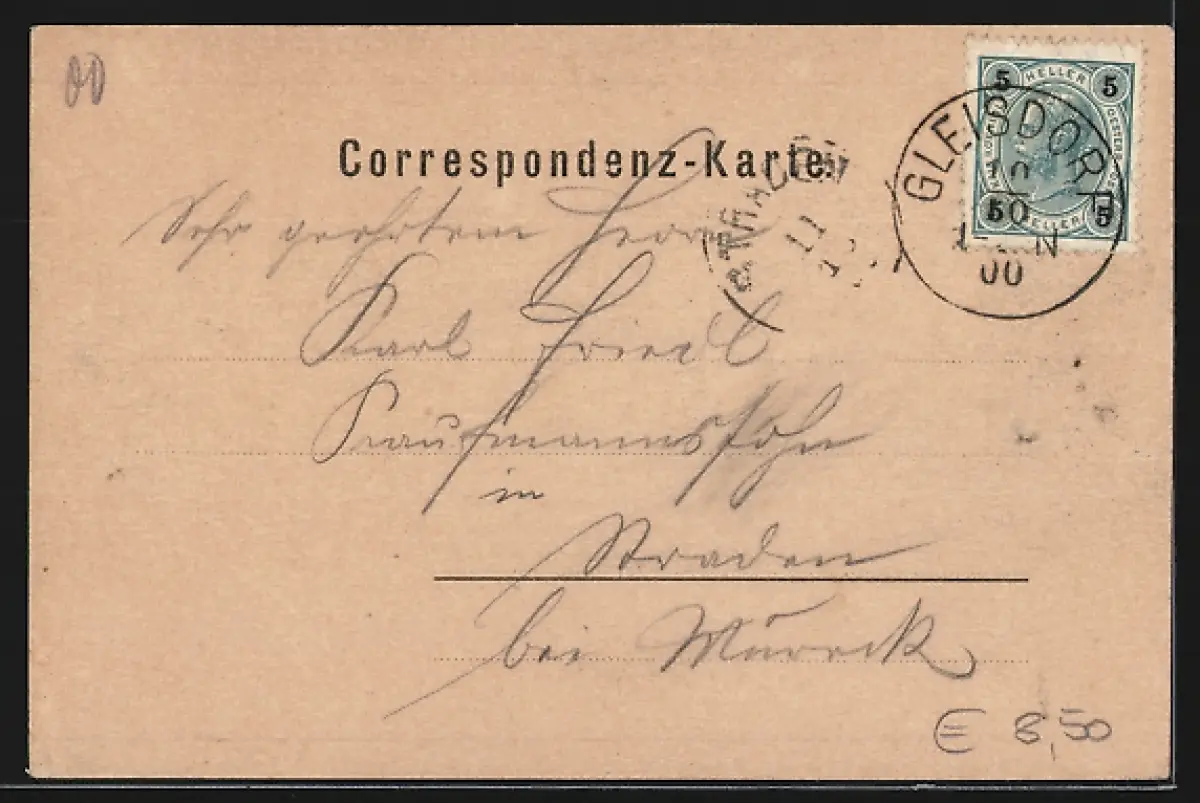 00
5 HELLER 5
5 HELLER 5
GLEISDORF
10
50
N
00
11
Correspondenz-Karte.
Sehr geehrtem Herrn
Karl Friedl
Kaufmannssohn
in
Straden
bei Mureck
€ 8,50